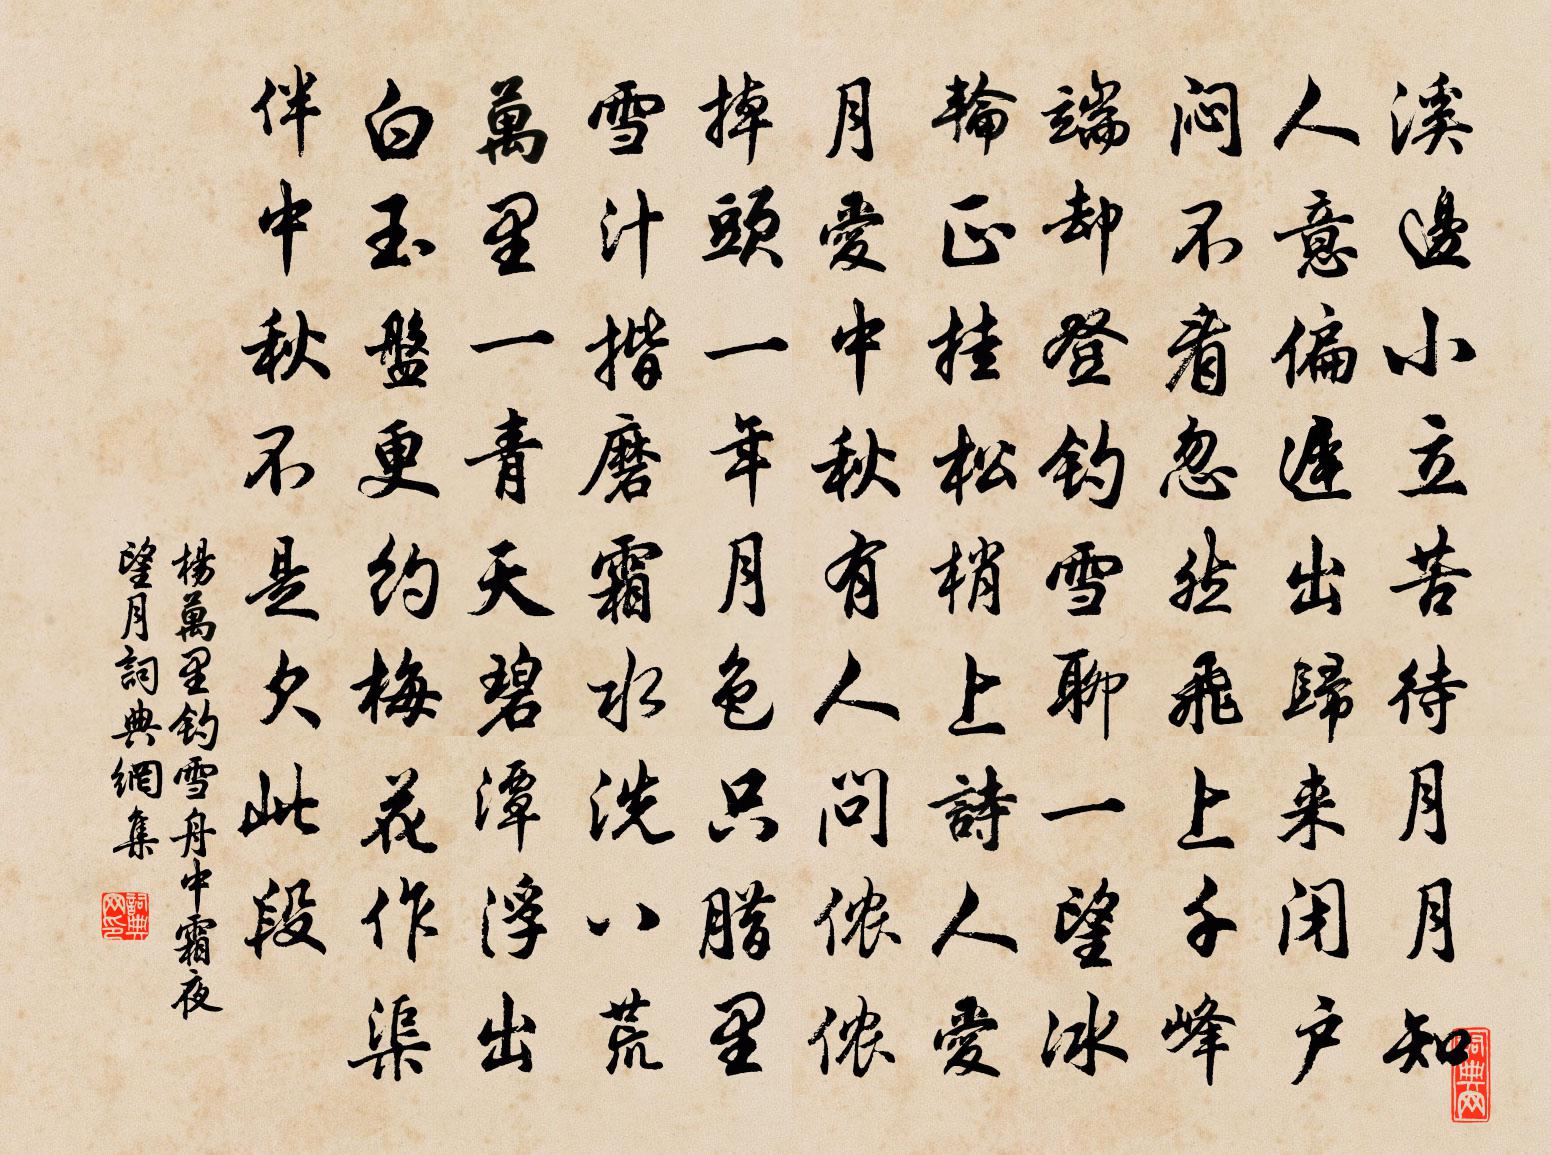 溪邊小立苦待月月知
人意偏遲出歸来闭户
闷不看忽然飛上千峰
端却登钓雪聊一望冰
輪正挂松梢上詩人愛
月愛中秋有人问侬侬
掉頭一年月色只腊里
雪汁揩磨霜水洗八荒
萬里一青天碧潭浮出
白玉盤更约梅花作渠
伴中秋不是欠此段
楊萬里钓雪舟中霜夜
望月詞典網集
詞典网印
詞典网